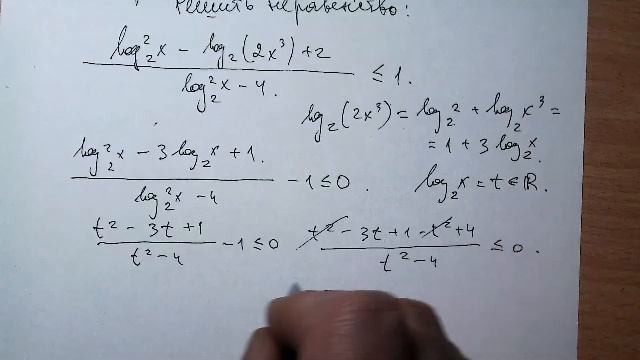 Решить неравенство:
(log₂²x − log₂(2x³) + 2) / (log₂²x − 4) ≤ 1.
log₂(2x³) = log₂2 + log₂x³ =
= 1 + 3log₂x.
(log₂²x − 3log₂x + 1) / (log₂²x − 4) − 1 ≤ 0.
log₂x = t ∈ ℝ.
(t² − 3t + 1) / (t² − 4) − 1 ≤ 0
(t² − 3t + 1 − t² + 4) / (t² − 4) ≤ 0.